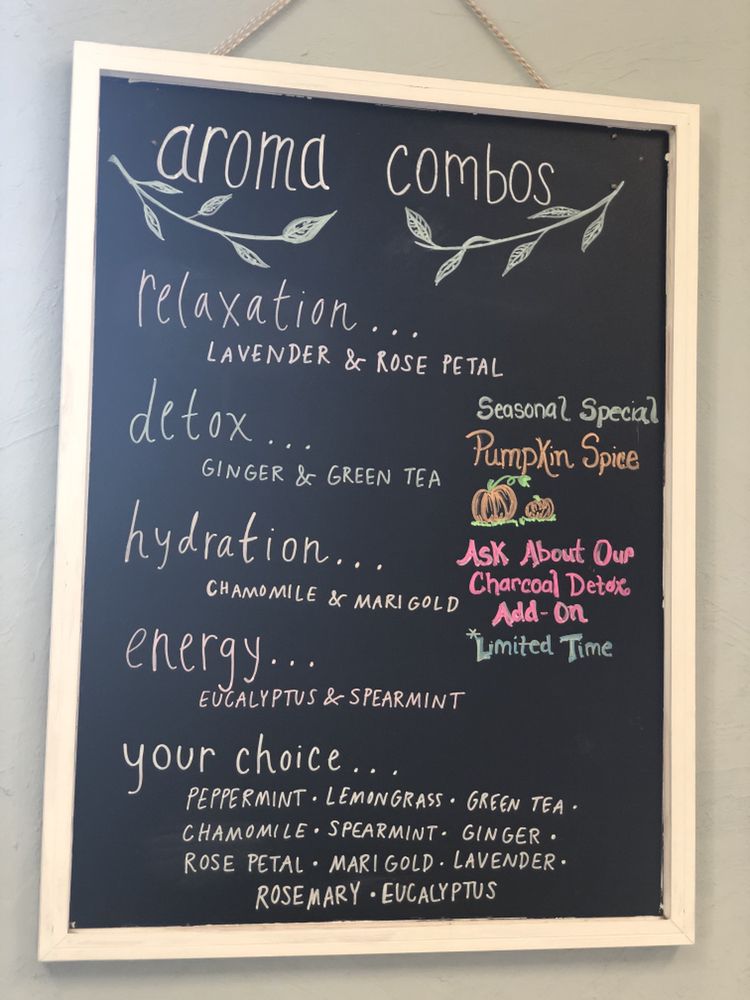 aroma combos
relaxation...
LAVENDER & ROSE PETAL
detox...
GINGER & GREEN TEA
hydration...
CHAMOMILE & MARIGOLD
energy...
EUCALYPTUS & SPEARMINT
your choice...
PEPPERMINT · LEMONGRASS · GREEN TEA ·
CHAMOMILE · SPEARMINT · GINGER ·
ROSE PETAL · MARIGOLD · LAVENDER ·
ROSEMARY · EUCALYPTUS
Seasonal Special
Pumpkin Spice
Ask About Our
Charcoal Detox
Add-On
*Limited Time